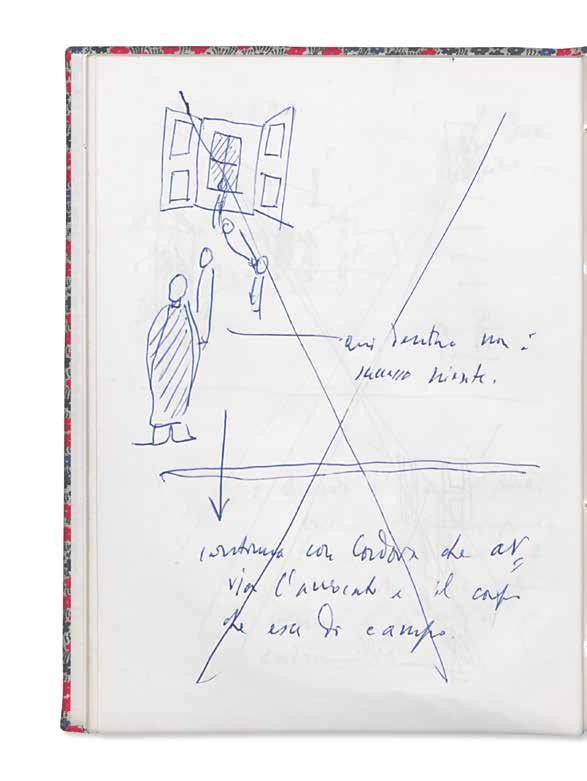 qui dentro non è
successo niente.
continua con Cordova che av
via l'avvocato e il corpo
che esce di campo.